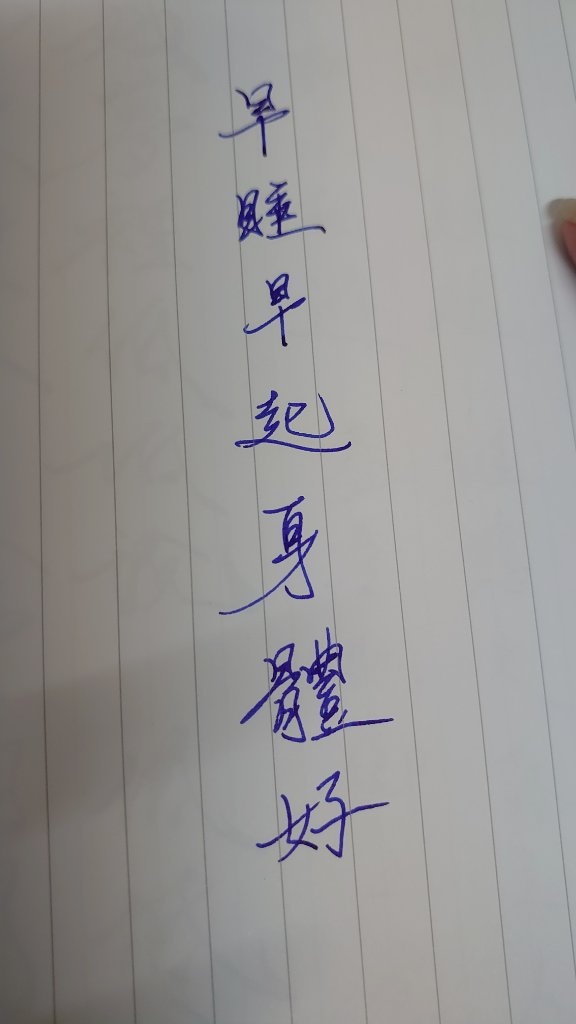 早睡早起身體好